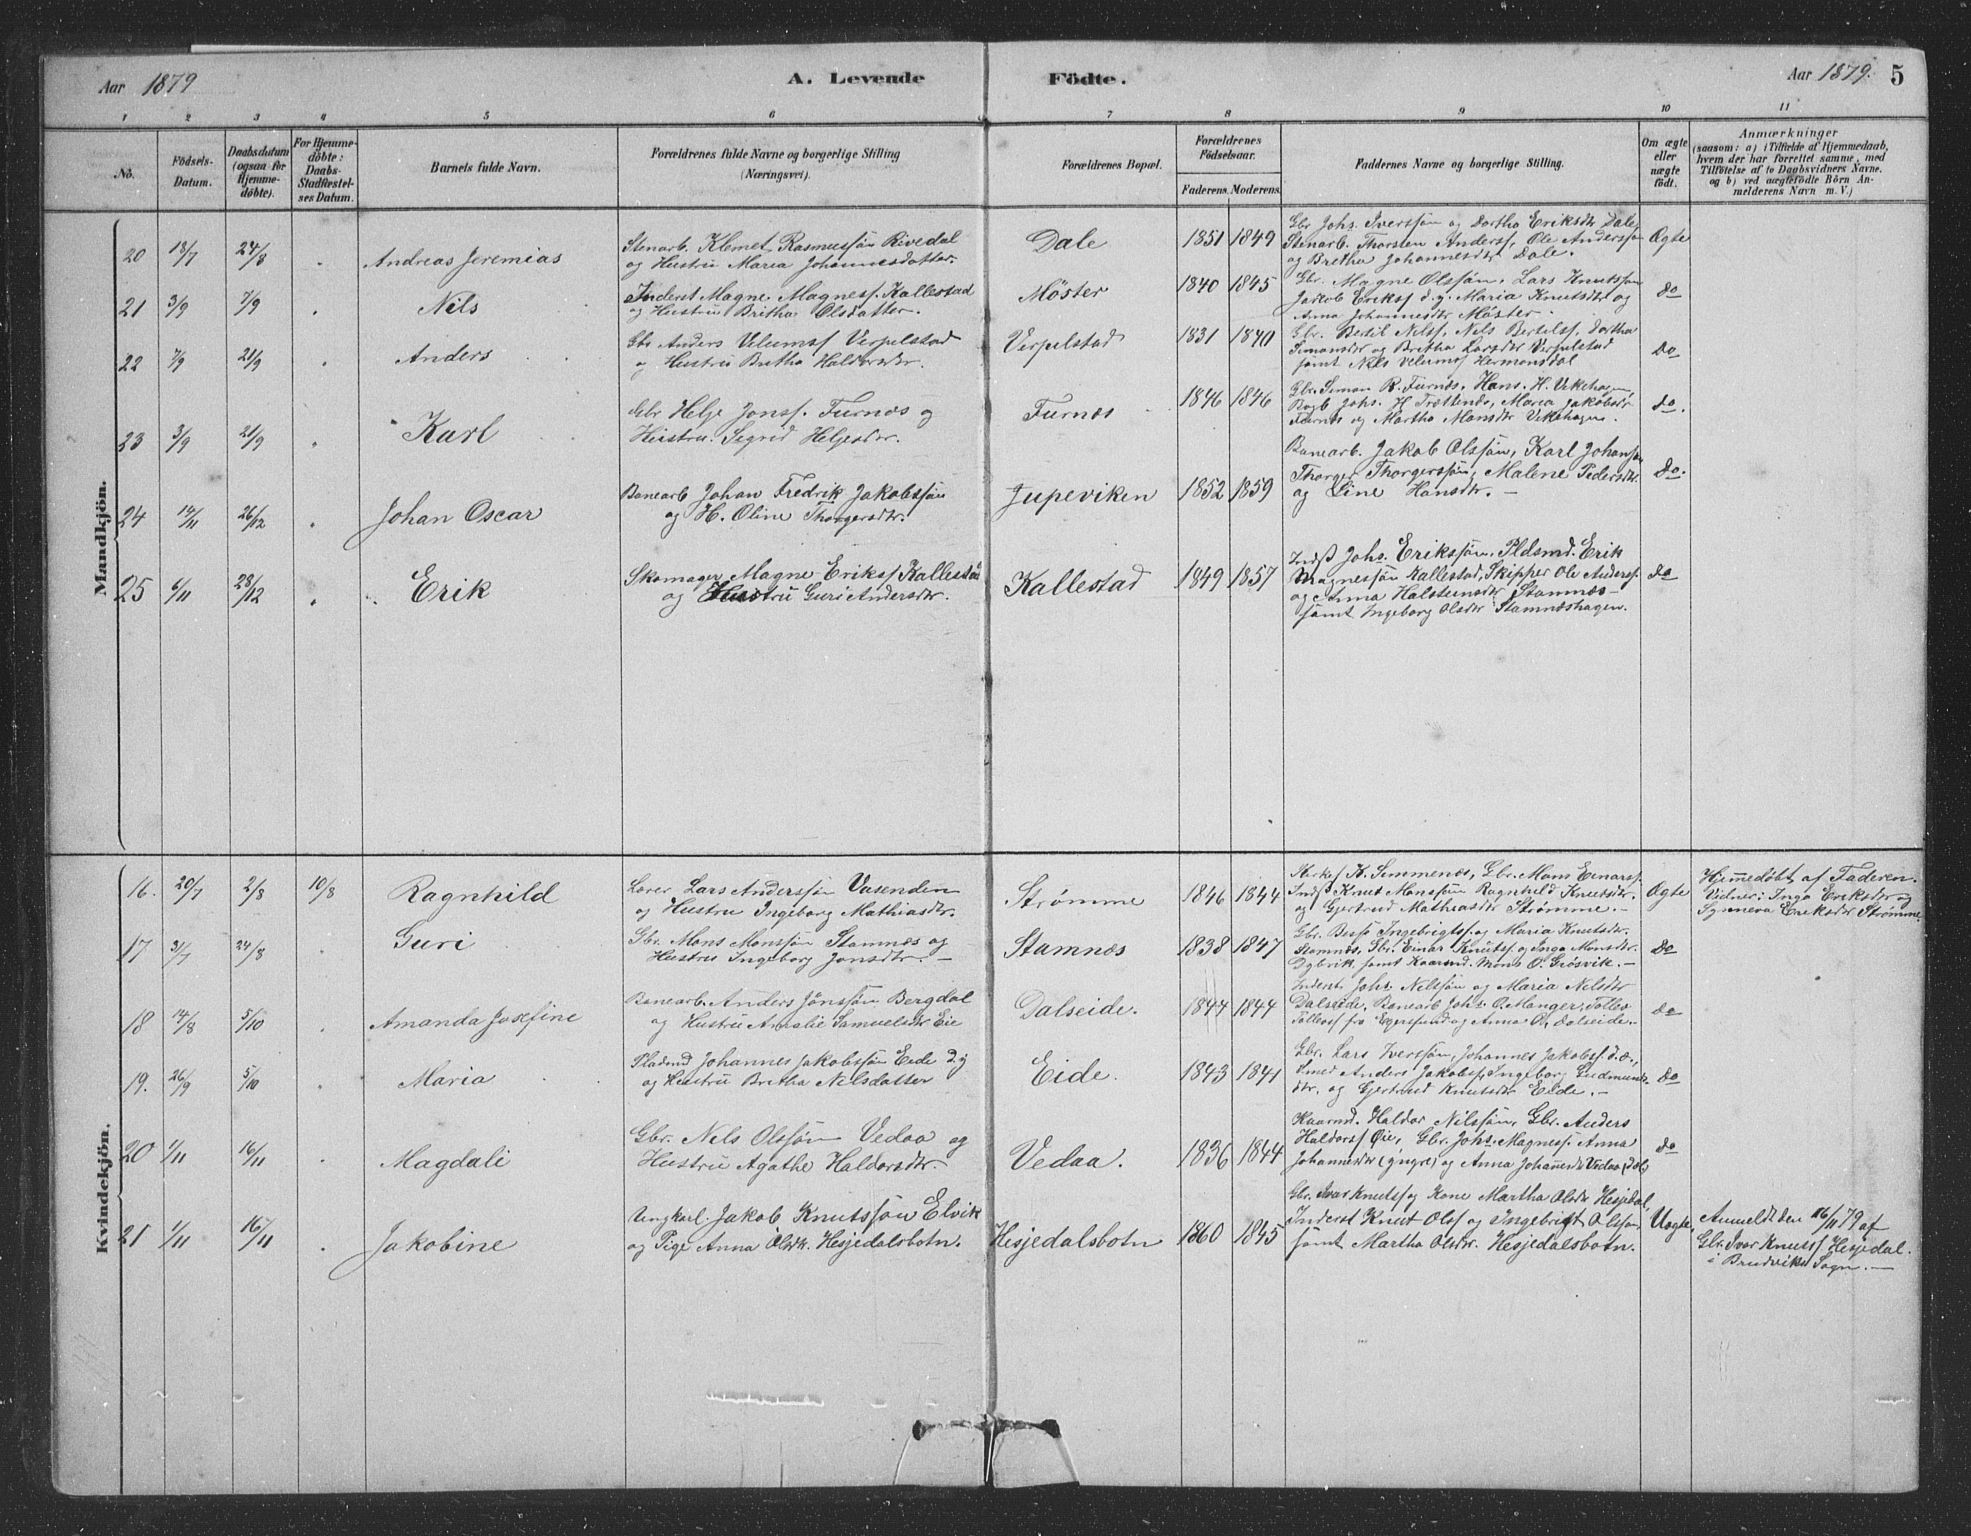 Aar 1879 A. Levende Födte. Aar 1879. 5
1 2 3 4 5 6 7 8 9 10 11
No.
Födsels-
Datum.
Daabsdatum
(ogsaa for
Hjemme-
döbte).
For Hjemme-
döbte:
Daabs-
Stadfæstel-
ses Datum.
Barnets fulde Navn.
Forældrenes fulde Navne og borgerlige Stilling
(Næringsvei).
Forældrenes Bopæl.
Forældrenes
Födselsaar.
Faderens. Moderens.
Faddernes Navne og borgerlige Stilling.
Om ægte
eller
uægte
födt.
Anmærkninger
(saasom: a) i Tilfælde af Hjemmedaab,
hvem der har forrettet samme, med
Tilföielse af to Daabsvidners Navne.
og b) ved uægtefödte Börn An-
melderens Navn m. V.)
Mandkjön.
20 18/7 24/8 Andreas Jeremias
Stenarb. Klemet Rasmussøn Rivedal
og Hustru Maria Johannesdatter.
Dale 1851 1849
Gbr Johs. Iverssøn og Dortha Eriksdtr Dale,
Stenarb. Thorsten Anderss, Ole Anderssøn
og Bretha Johannesdtr Dale.
Ægte
21 3/9 7/9 Nils
Inderst Magne Magness. Kallestad
og Hustru Britha Olsdatter.
Møster 1840 1845
Gbr. Magne Olssøn, Lars Knutssøn
Jakob Erikss d.y. Maria Knutsdtr og
Anna Johannesdtr Møster.
do
22 7/9 21/9 Anders
Gbr Anders Velumss Verpelstad
og Hustru Bretha Haldorsdtr.
Verpelstad 1831 1840
Gbr. Bertil Nilss, Nils Bertelss, Dortha
Simonsdtr og Bretha Larsdtr Verpelstad
samt Nils Velumss Hermansdal
Do
23 3/9 21/9 Karl
Gbr Helje Jonss. Furnæs og
Hustru Segrid Heljesdtr.
Furnæs 1846 1846
Gbr. Simon R. Furnæs, Hans H. Vikehagen,
Johs. H. Trættenes, Maria Jakobsdr
Furnæs og Martha Monsdtr Vikehagen.
do.
24 14/11 26/12 Johan Oscar
Banearb Johan Fredrik Jakobssøn
og H. Oline Thorgersdtr.
Jupeviken 1852 1859
Banearb. Jakob Olssøn, Karl Johanson
Thorger Thorgerssøn, Malene Pedersdtr
og Line Hansdtr. —
Do.
25 6/11 28/12 Erik
Skomager Magne Erikss Kallestad
og Hustru Guri Andersdtr.
Kallestad 1849 1857
Indst Johs. Erikssøn, Pldsmd. Erik
Magnessøn Kallestad, Skipper Ole Anderss.
og Anna Halsteinsdtr Stamnæs
samt Ingeborg Olsdtr Stamnæshagen.
do
Kvindekjön.
16. 20/7 2/8 10/8 Ragnhild
Lærer Lars Anderssøn Vasenden
og Hustru Ingeborg Mathiasdtr.
Strømme 1846 1844
K. Simmenæs, Gbr. Mons Einarss.
Indst Knut Monssøn Ragnhild Knutsdtr.
og Gjertrud Mathiasdtr Strømme. —
Ægte
Hjemedöbt af Faderen.
Vidner: Inga Eriksdtr og
Synneva Eriksdtr Strømme
17 3/7 24/8 Guri
Gbr. Mons Monssøn Stamnæs og
Hustru Ingeborg Jonsdtr. —
Stamnæs 1838 1847
Gbr. Ingebrigtss. og Maria Knutsdtr.
Stamnæs, Gbr. Einar Knutss. og Inga Monsdtr.
Dybvik samt Kaarmd. Mons O. Grøsvik. —
Do
18 14/8 5/10 Amanda Josefine
Banearb. Anders Jönssön Bergdal
og Hustru Amalie Samuelsdtr Eie
Dalseide. 1844 1844
Inderst Johs Nilssøn og Maria Nilsdtr
Dalseide, Banearb Johs O. Manger,
fra Egersund og Anna O. Dalseide.
do
19. 26/9 5/10 Maria
Pladsmd Johannes Jakobssøn Eide d.y
og Hustru Bretha Nilsdatter
Eide. 1843 1841
Gbr. Lars Iverssøn, Johannes Jakobss. d.æ.,
Smed Anders Jakobss, Ingeborg Gudmunds-
dtr. og Gjertrud Knutsdtr Eide. —
do
20 1/11 16/11 Magdali
Gbr. Nils Olssøn Vedaa og
Hustru Agathe Haldorsdtr.
Vedaa. 1836 1844
Kaarmd. Haldor Nilssøn, Gbr. Anders
Haldorss Øie, Gbr. Johs. Magness. Anna
Johannesdtr (yngre) og Anna Johannesdtr Vedaa
do
21 1/11 16/11 Jakobine
Ungkarl. Jakob Knutssøn Elvik
og Pige Anna Olsdtr. Hesjedalsbotn.
Hesjedalsbotn 1860 1845
Gbr. Ivar Knutss og Kone Martha Olsdtr Hesjedal,
Inderst Knut Olss og Ingebrigt Olssøn
samt Martha Olsdtr. Hesjedalsbotn.
Uægte
Anmeldt den 16/11 79 af
Gbr. Ivar Knutss Hesjedal.
i Brudviks Sogn. —